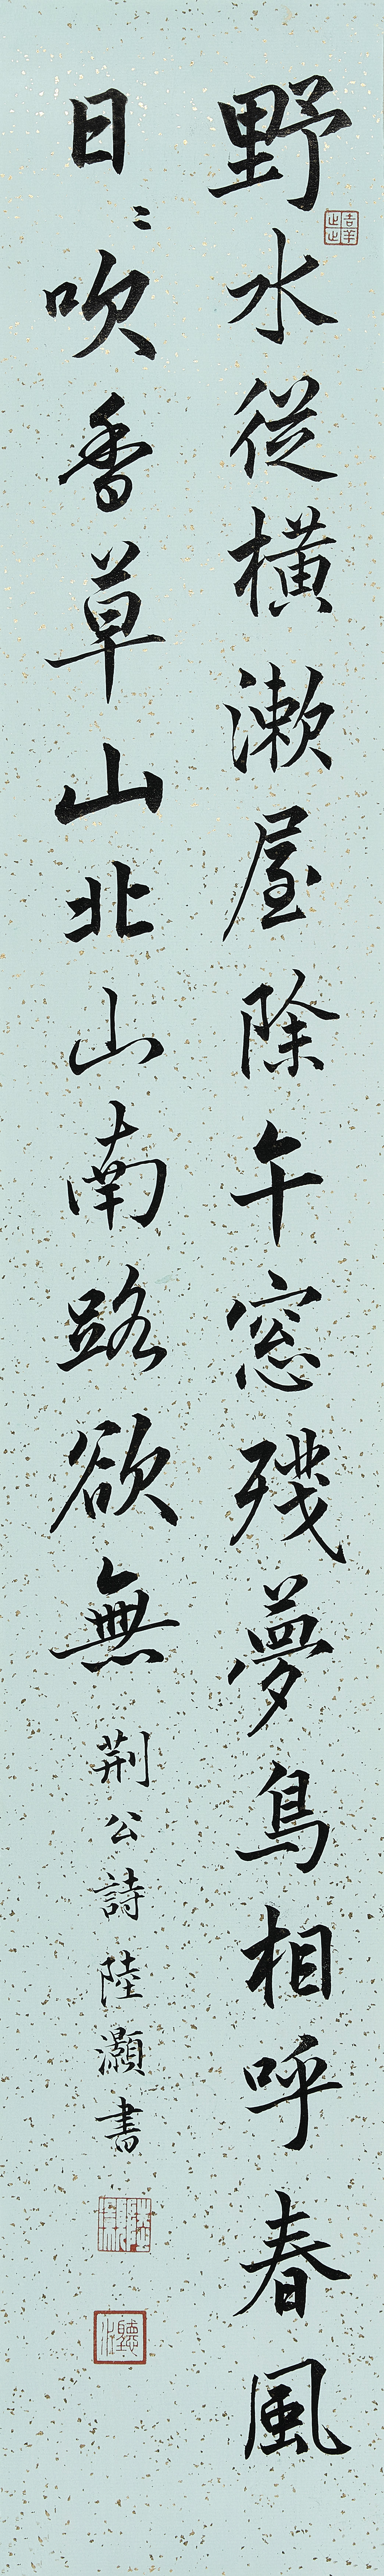 野水從橫漱屋除午窓残夢鳥相呼春風
日〻吹香草山北山南路欲無 荊公詩 陸灝書
吉羊止止